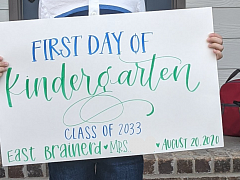 FIRST DAY OF
Kindergarten
CLASS OF 2033
EAST BRAINERD ♥ MRS. ♥ AUGUST 20, 2020